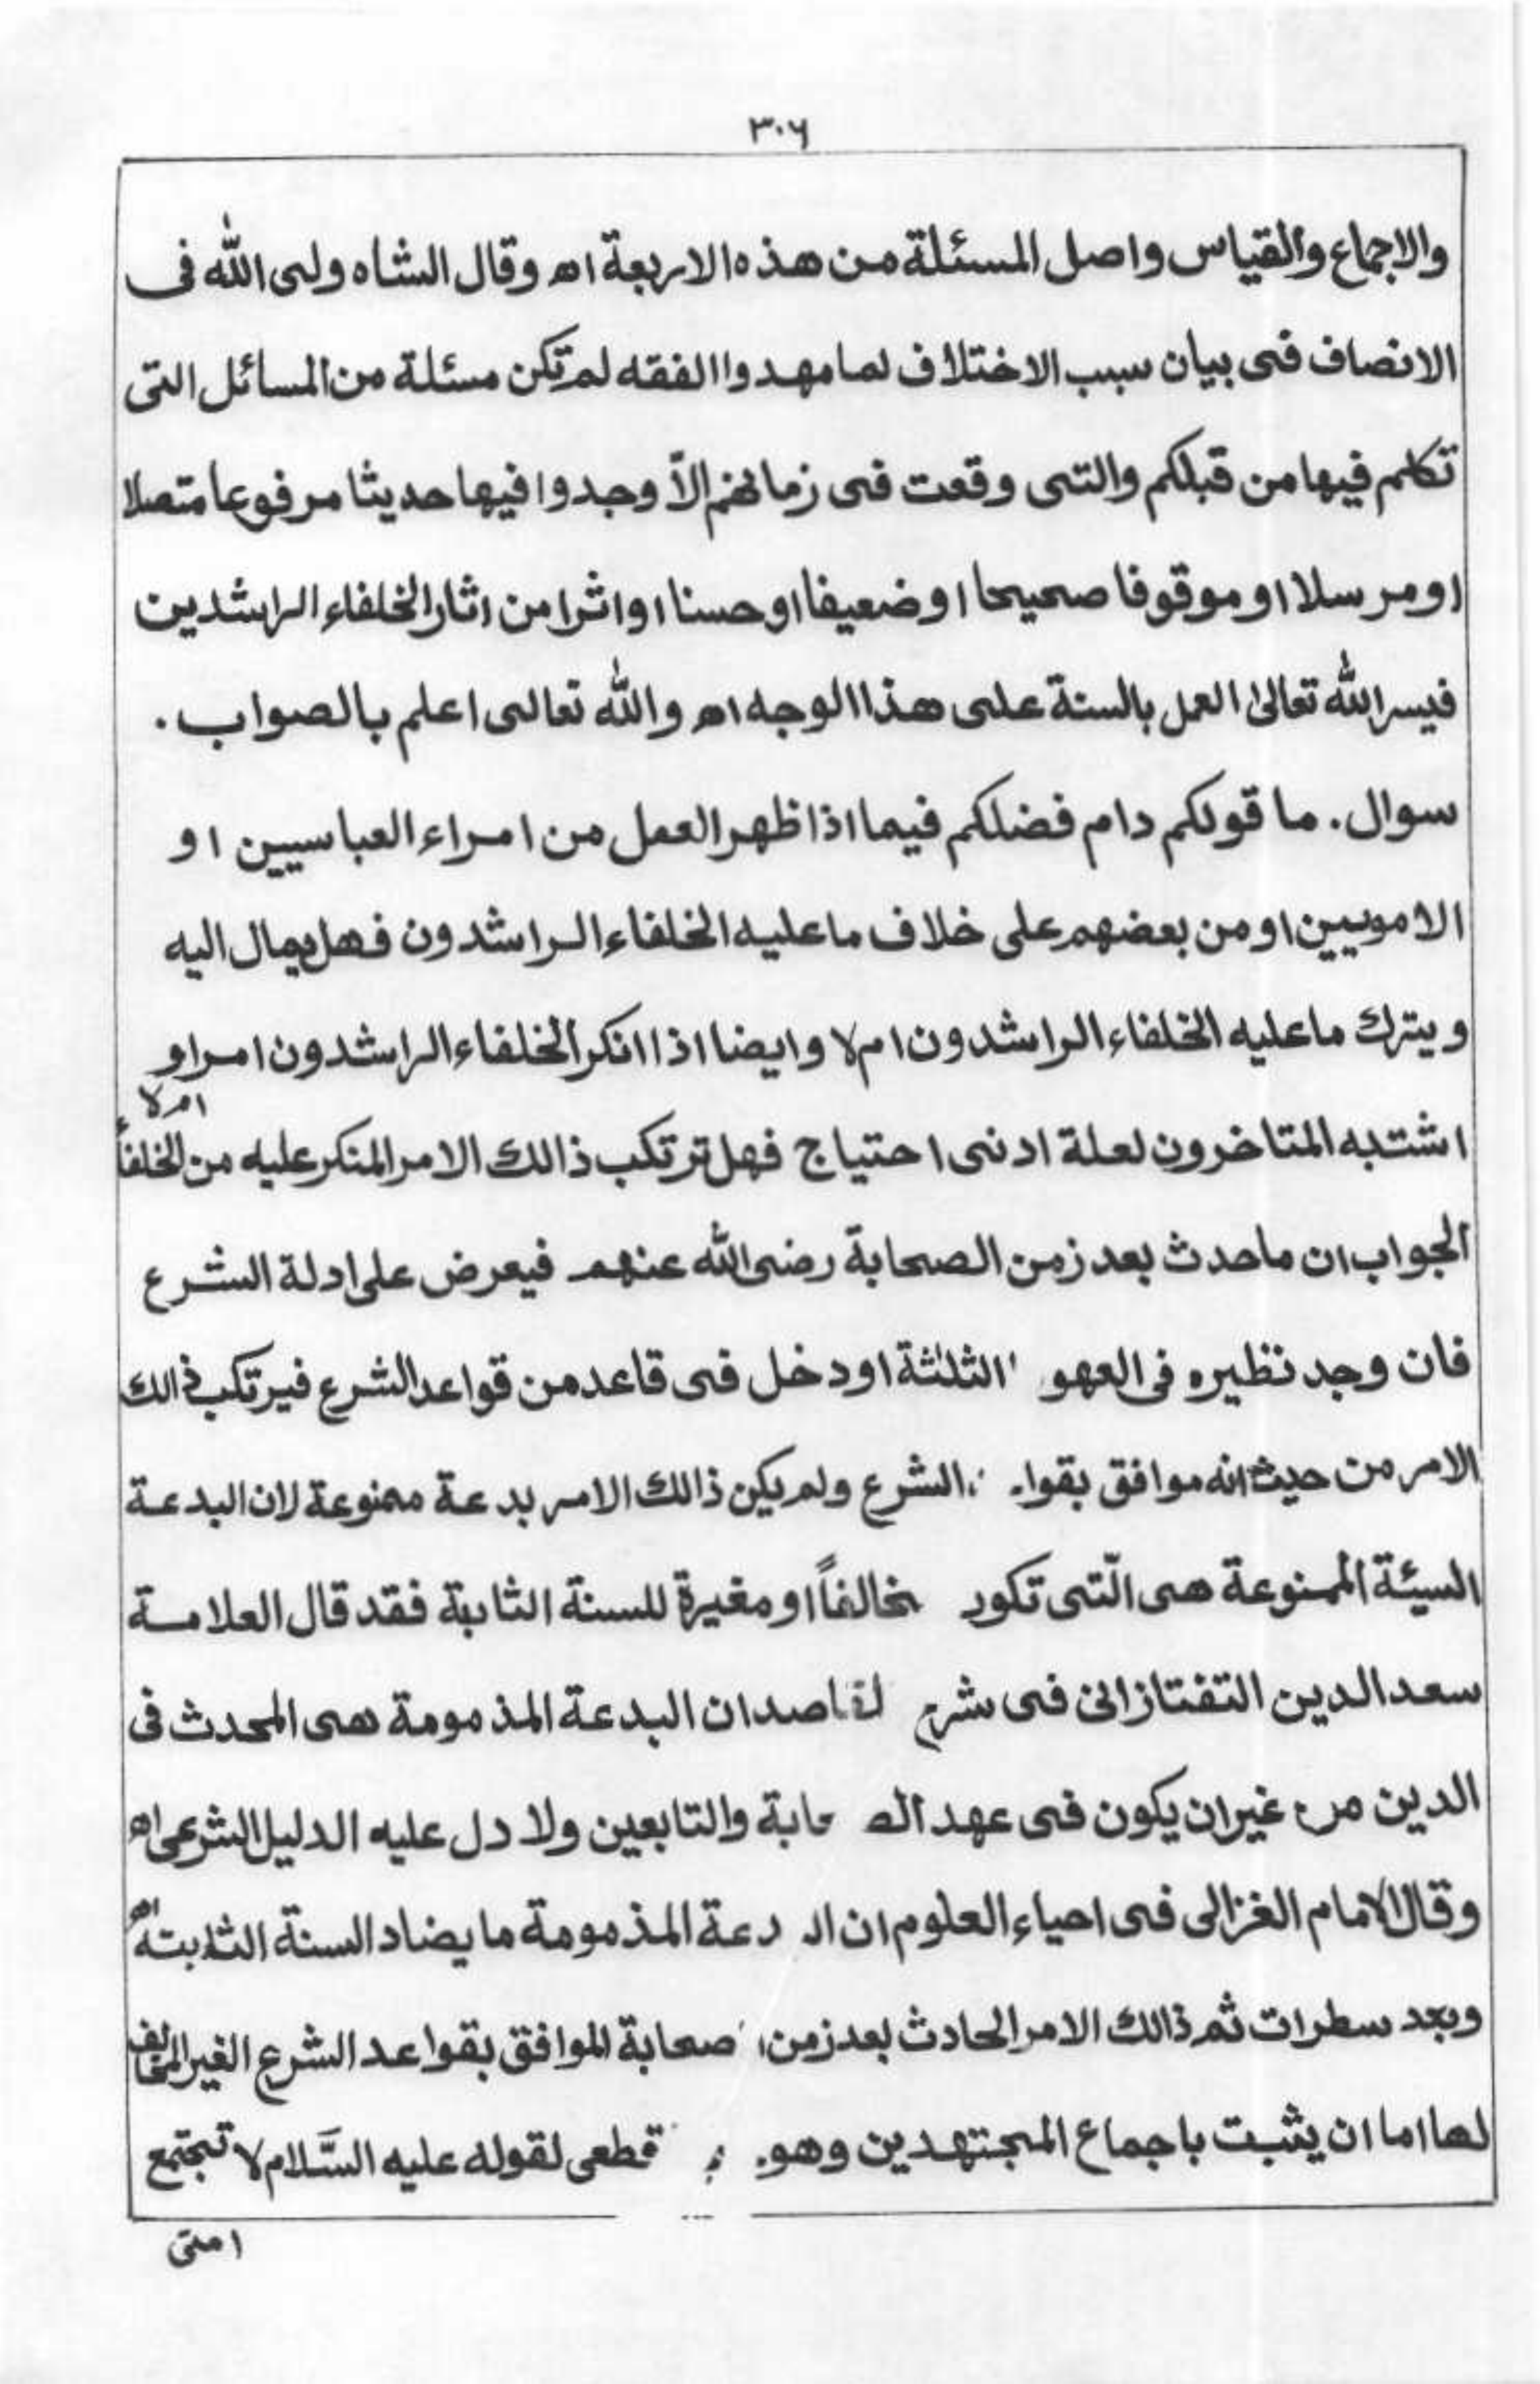 ٣٠٦
والاجماع والقياس واصل المسئلة من هذه الاربعة اھ وقال الشاه ولى الله فى
الانصاف فى بيان سبب الاختلاف لما مهدوا الفقه لم تكن مسئلة من المسائل التى
تكلم فيها من قبلكم والتى وقعت فى زمانهم الاّ وجدوا فيها حديثا مرفوعا متصلا
او مرسلا او موقوفا صحيحا او ضعيفا او حسنا او اثرا من اثار الخلفاء الراشدين
فيسر الله تعالىٰ العمل بالسنة على هذا الوجه اھ والله تعالى اعلم بالصواب .
سوال . ما قولكم دام فضلكم فيما اذا ظهر العمل من امراء العباسيين او
الامويين او من بعضهم على خلاف ما عليه الخلفاء الراشدون فهل يمال اليه
ويترك ما عليه الخلفاء الراشدون ام لا وايضا اذا انكر الخلفاء الراشدون امرا و
اشتبه المتاخرون لعلة ادنى احتياج فهل ترتكب ذالك الامر المنكر عليه من الخلفاء ام لا
الجواب ان ما حدث بعد زمن الصحابة رضى الله عنهم فيعرض على ادلة الشرع
فان وجد نظيره فى العهو الثلثة او دخل فى قاعد من قواعد الشرع فيرتكب ذالك
الامر من حيث انه موافق بقوا الشرع ولم يكن ذالك الامر بدعة ممنوعة لان البدعة
السيئة الممنوعة هى الّتى تكون مخالفاً او مغيرة للسنة الثابتة فقد قال العلامة
سعد الدين التفتازانى فى شرح لمقاصد ان البدعة المذمومة هى المحدث فى
الدين من غير ان يكون فى عهد الصحابة والتابعين ولا دل عليه الدليل الشرعى اھ
وقال الامام الغزالى فى احياء العلوم ان البدعة المذمومة ما يضاد السنة الثابتة اھ
وبعد سطرات ثم ذالك الامر الحادث بعد زمن الصحابة الموافق بقواعد الشرع الغير المخالف
لها اما ان يثبت باجماع المجتهدين وهو قطعى لقوله عليه السَّلام لا تجتمع
امتى